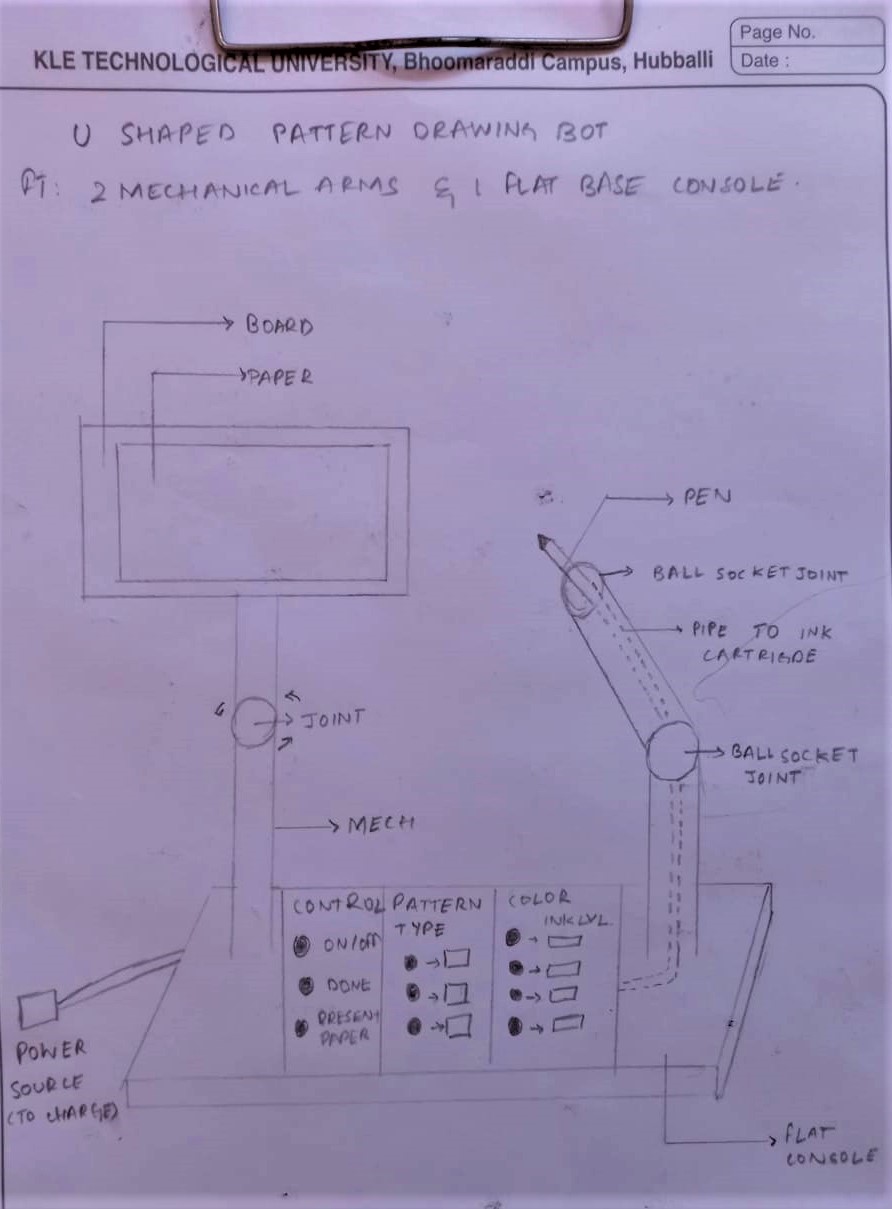 KLE TECHNOLOGICAL UNIVERSITY, Bhoomaraddi Campus, Hubballi
Page No.
Date :
U SHAPED PATTERN DRAWING BOT
PT: 2 MECHANICAL ARMS & 1 FLAT BASE CONSOLE.
BOARD
PAPER
PEN
BALL SOCKET JOINT
PIPE TO INK
CARTRIGDE
JOINT
BALL SOCKET
JOINT
MECH
CONTROL
ON/OFF
DONE
PRESENT
PAPER
PATTERN
TYPE
COLOR
INK LVL.
POWER
SOURCE
(TO CHARGE)
FLAT
CONSOLE